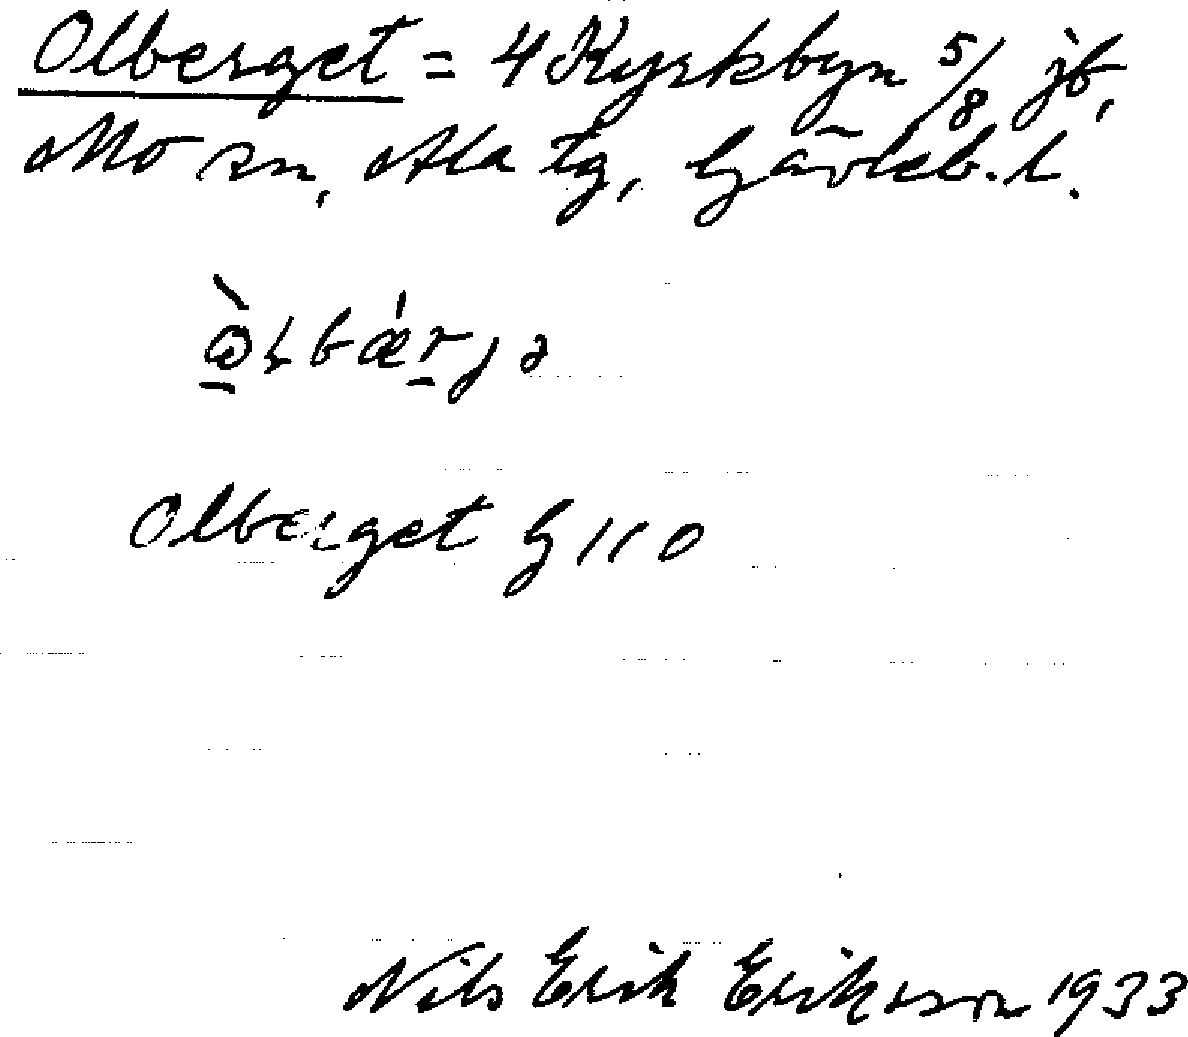 Olberget = 4 Kyrkbyn 5/8 jb,
Mo sn, Ala tg, Gävleb. l.
Olberget G 110
Nils Erik Eriksson 1933